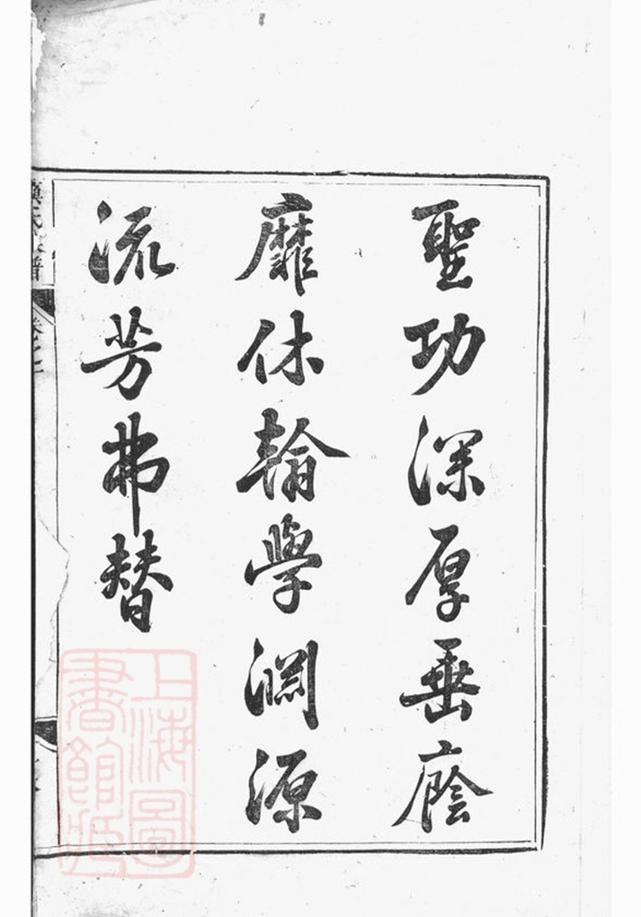 聖功深厚垂廕
靡休翰學淵源
流芳弗替
氏
譜
卷之
上海圖
書館藏